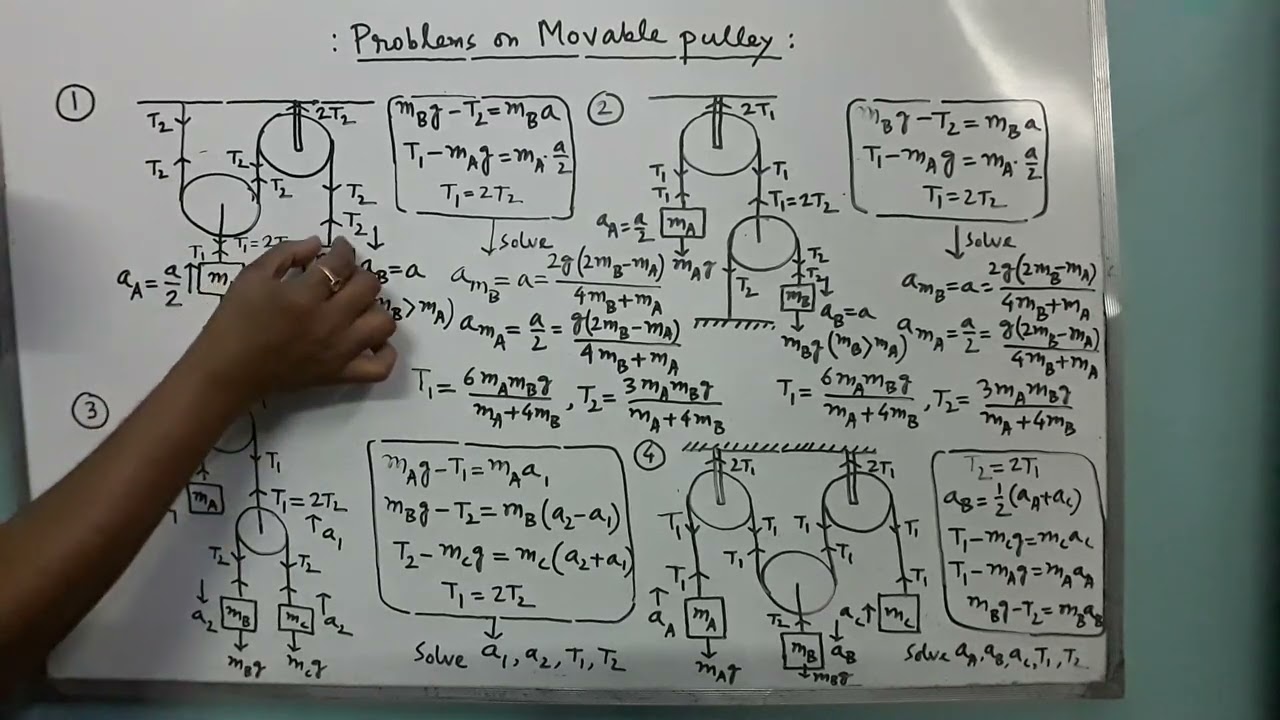 : Problems on Movable pulley :
①
2T₂
T₂
T₂
T₂
T₂
T₂
T₂
T₁
a_A = a/2
a_B = a
m_B > m_A)
m_Bg − T₂ = m_Ba
T₁ − m_Ag = m_A · a/2
T₁ = 2T₂
Solve
a_{m_B} = a = 2g(2m_B − m_A)/(4m_B + m_A)
a_{m_A} = a/2 = g(2m_B − m_A)/(4m_B + m_A)
T₁ = 6m_Am_Bg/(m_A + 4m_B), T₂ = 3m_Am_Bg/(m_A + 4m_B)
②
2T₁
T₁
T₁
T₁
T₁ = 2T₂
a_A = a/2
m_A
m_Ag
T₂
T₂
T₂
m_B
a_B = a
m_Bg (m_B > m_A)
m_Bg − T₂ = m_Ba
T₁ − m_Ag = m_A · a/2
T₁ = 2T₂
Solve
a_{m_B} = a = 2g(2m_B − m_A)/(4m_B + m_A)
a_{m_A} = a/2 = g(2m_B − m_A)/(4m_B + m_A)
T₁ = 6m_Am_Bg/(m_A + 4m_B), T₂ = 3m_Am_Bg/(m_A + 4m_B)
③
T₁
m_A
T₁ = 2T₂
a₁
T₂
T₂
a₂
m_B
m_C
a₂
m_Bg
m_Cg
m_Ag − T₁ = m_Aa₁
m_Bg − T₂ = m_B(a₂ − a₁)
T₂ − m_Cg = m_C(a₂ + a₁)
T₁ = 2T₂
Solve a₁, a₂, T₁, T₂
④
2T₁
2T₁
T₁
T₁
T₁
T₁
T₁
T₁
T₁
T₁
a_A
m_A
m_Ag
T₂
m_B
a_B
m_Bg
a_C
m_C
T₂ = 2T₁
a_B = 1/2 (a_A + a_C)
T₁ − m_Cg = m_Ca_C
T₁ − m_Ag = m_Aa_A
m_Bg − T₂ = m_Ba_B
Solve a_A, a_B, a_C, T₁, T₂